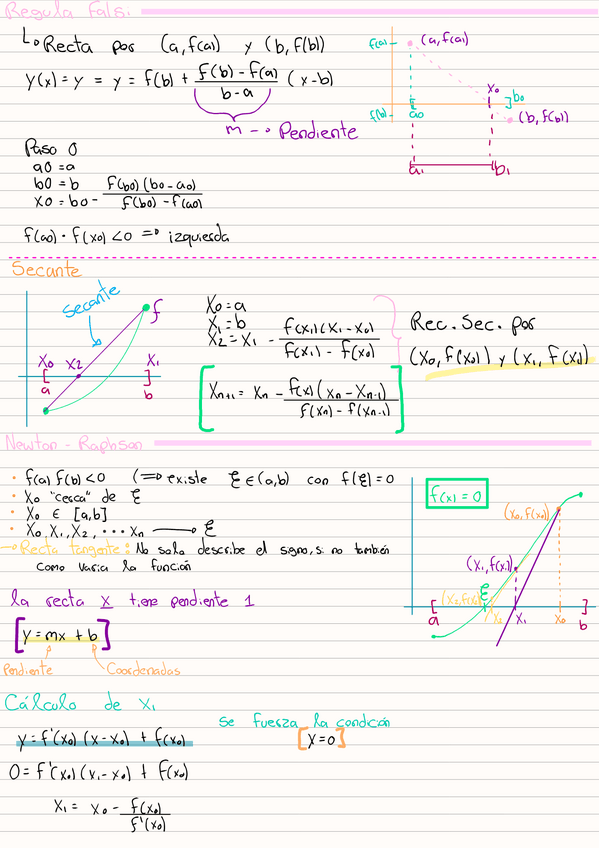 Regula Falsi
↳ Recta por (a, f(a)) y (b, f(b))
y(x) = y = y = f(b) + f(b) - f(a) / b - a (x-b)
m → Pendiente
f(a)
(a, f(a))
X0
f(b)
a0
b0
(b, f(b))
a1
b1
Paso 0
a0 = a
b0 = b
x0 = b0 - f(b0)(b0-a0) / f(b0) - f(a0)
f(a0) · f(x0) < 0 => izquierda
Secante
secante
f
X0
X2
X1
a
b
X0 = a
X1 = b
X2 = X1 - f(x1)(x1-x0) / f(x1) - f(x0)
Xn+1 = Xn - f(x)(xn - xn-1) / f(xn) - f(xn-1)
Rec. Sec. por
(x0, f(x0)) y (x1, f(x1))
Newton - Raphson
• f(a) f(b) < 0 (=> existe ξ ∈ (a,b) con f(ξ) = 0
• X0 "cerca" de ξ
• X0 ∈ [a,b]
• X0, X1, X2, ... Xn → ξ
→ Recta tangente: No solo describe el signo, si no también
como varia la función
f(x) = 0
(x0, f(x0))
(x1, f(x1))
(x2, f(x2))
ξ
a
X2
X1
X0
b
la recta x tiene pendiente 1
[y = mx + b]
Pendiente
Coordenadas
Cálculo de X1
y = f'(x0) (x-x0) + f(x0)
Se fuerza la condción
[y=0]
0 = f'(x0) (x1-x0) + f(x0)
X1 = X0 - f(x0) / f'(x0)